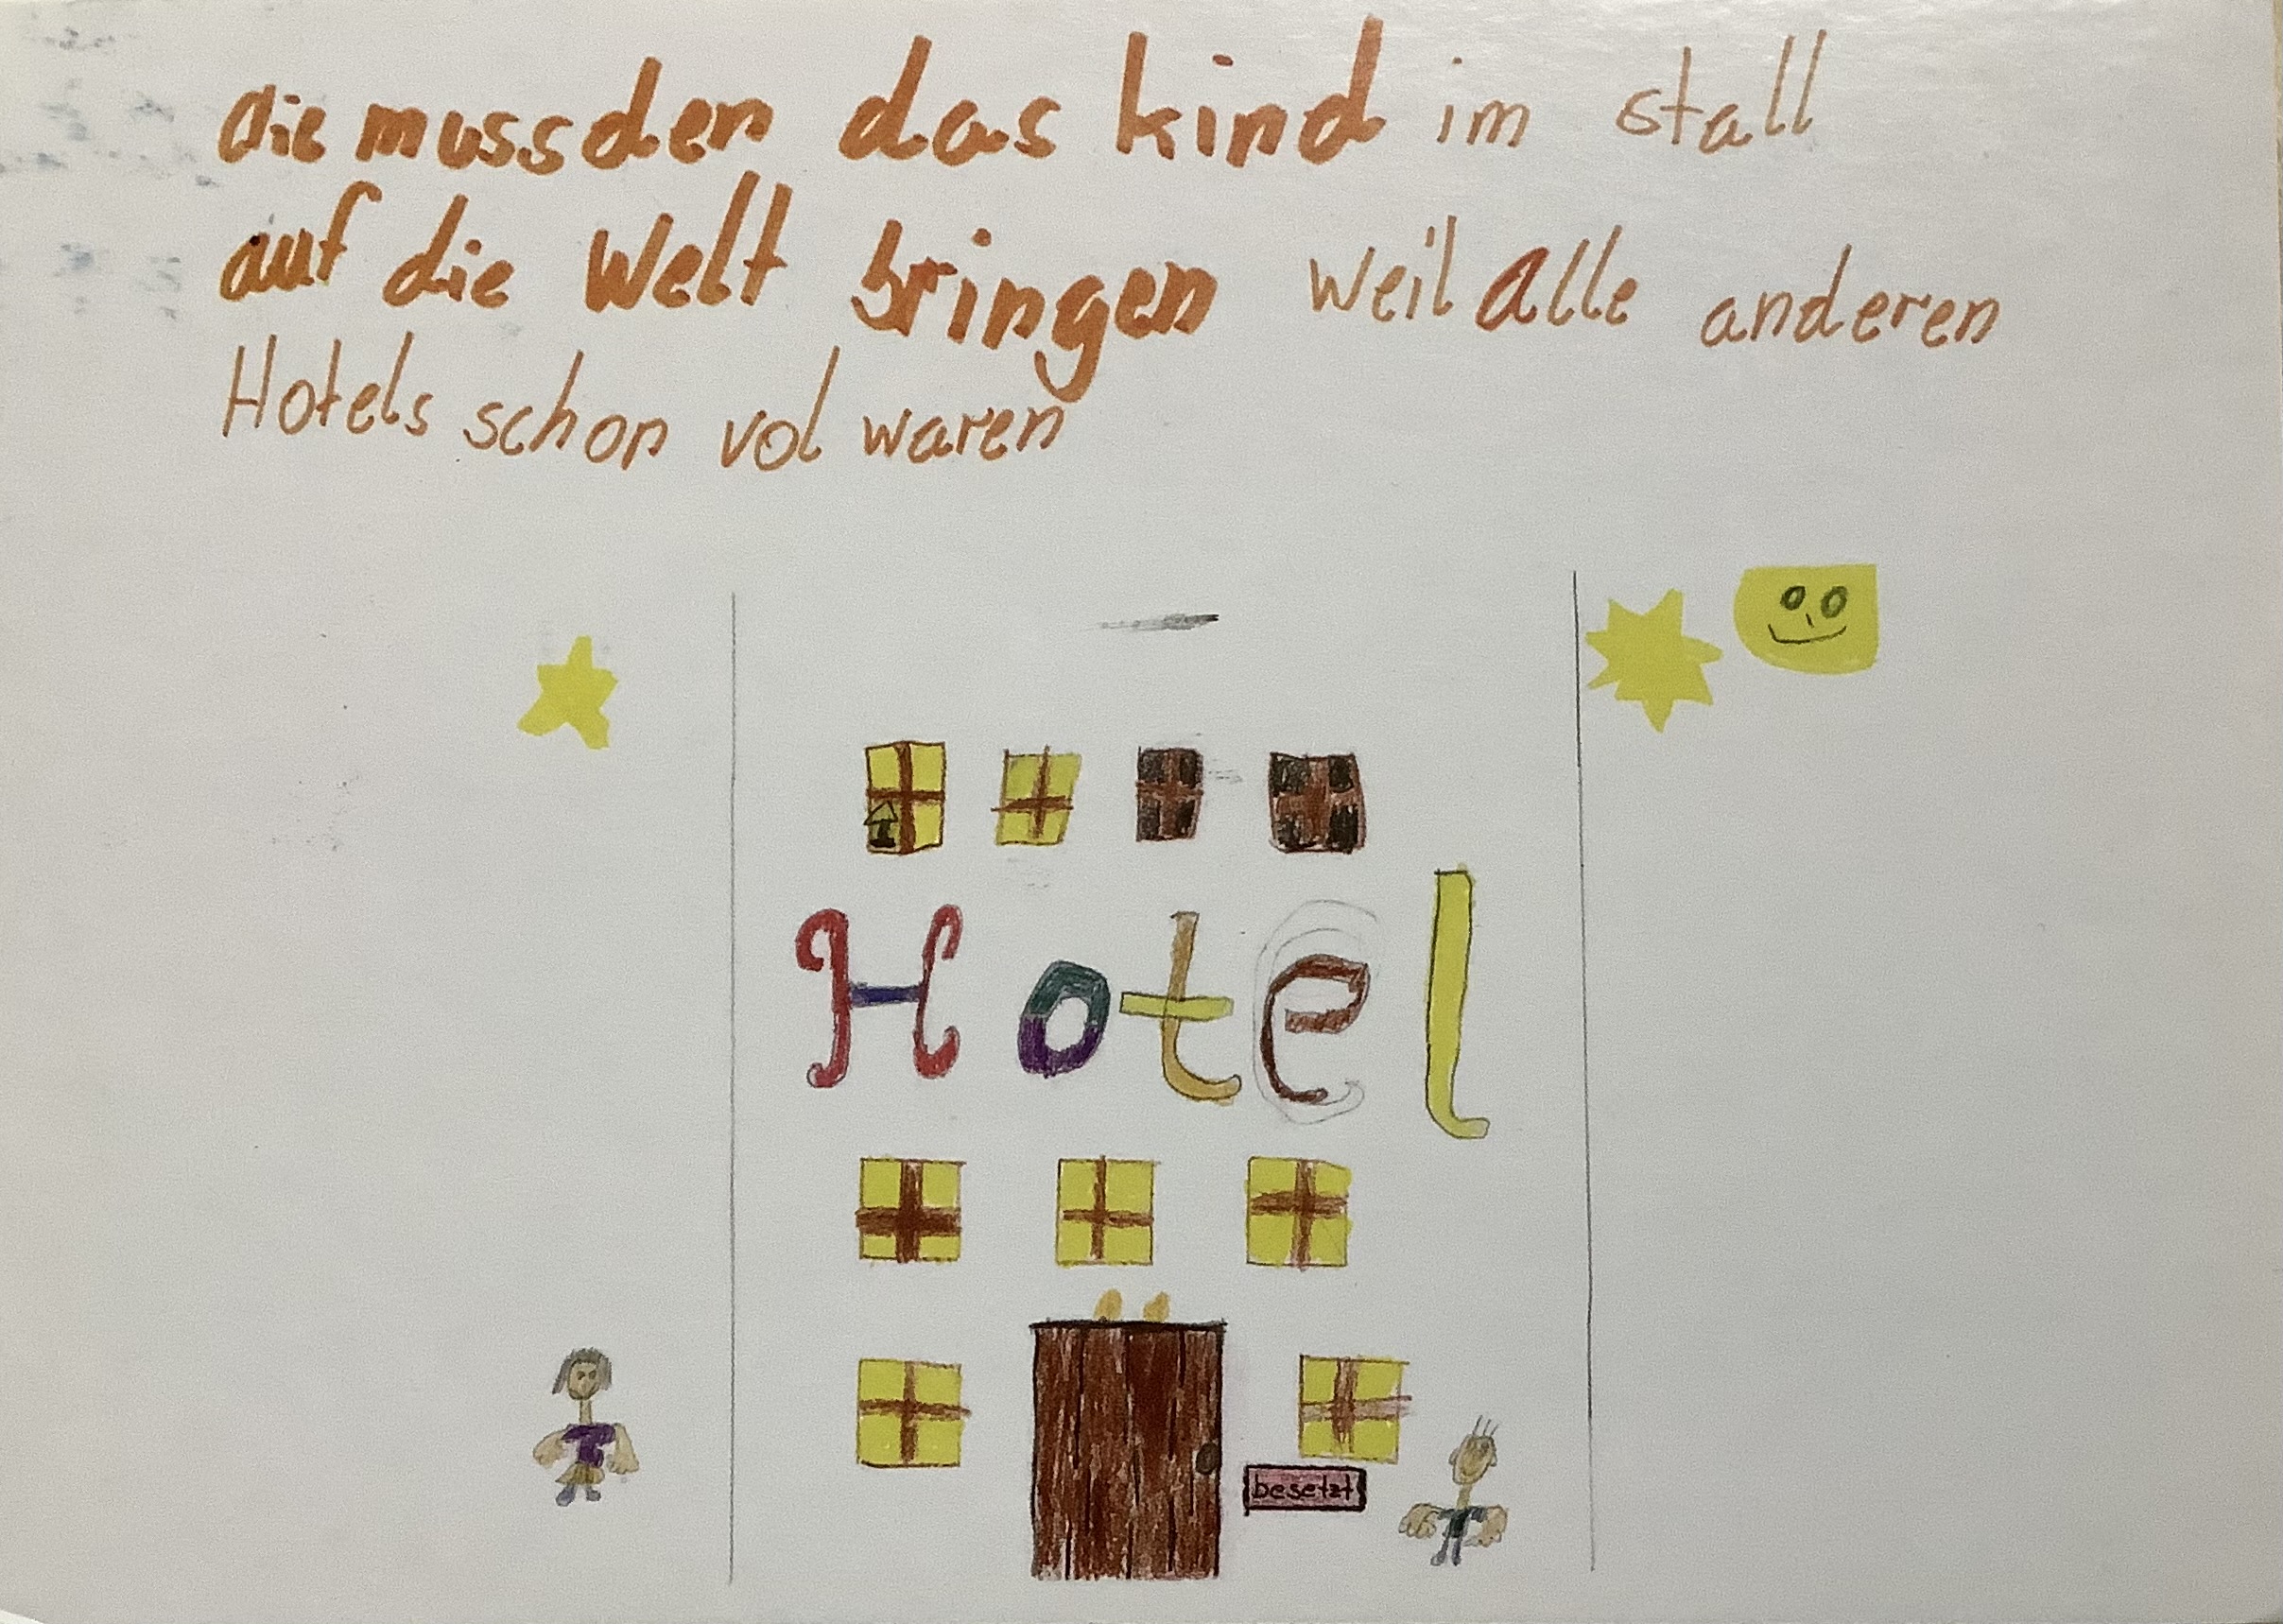 die mussder das kind im stall
auf die Welt bringen weil alle anderen
Hotels schon vol waren
Hotel
besetzt